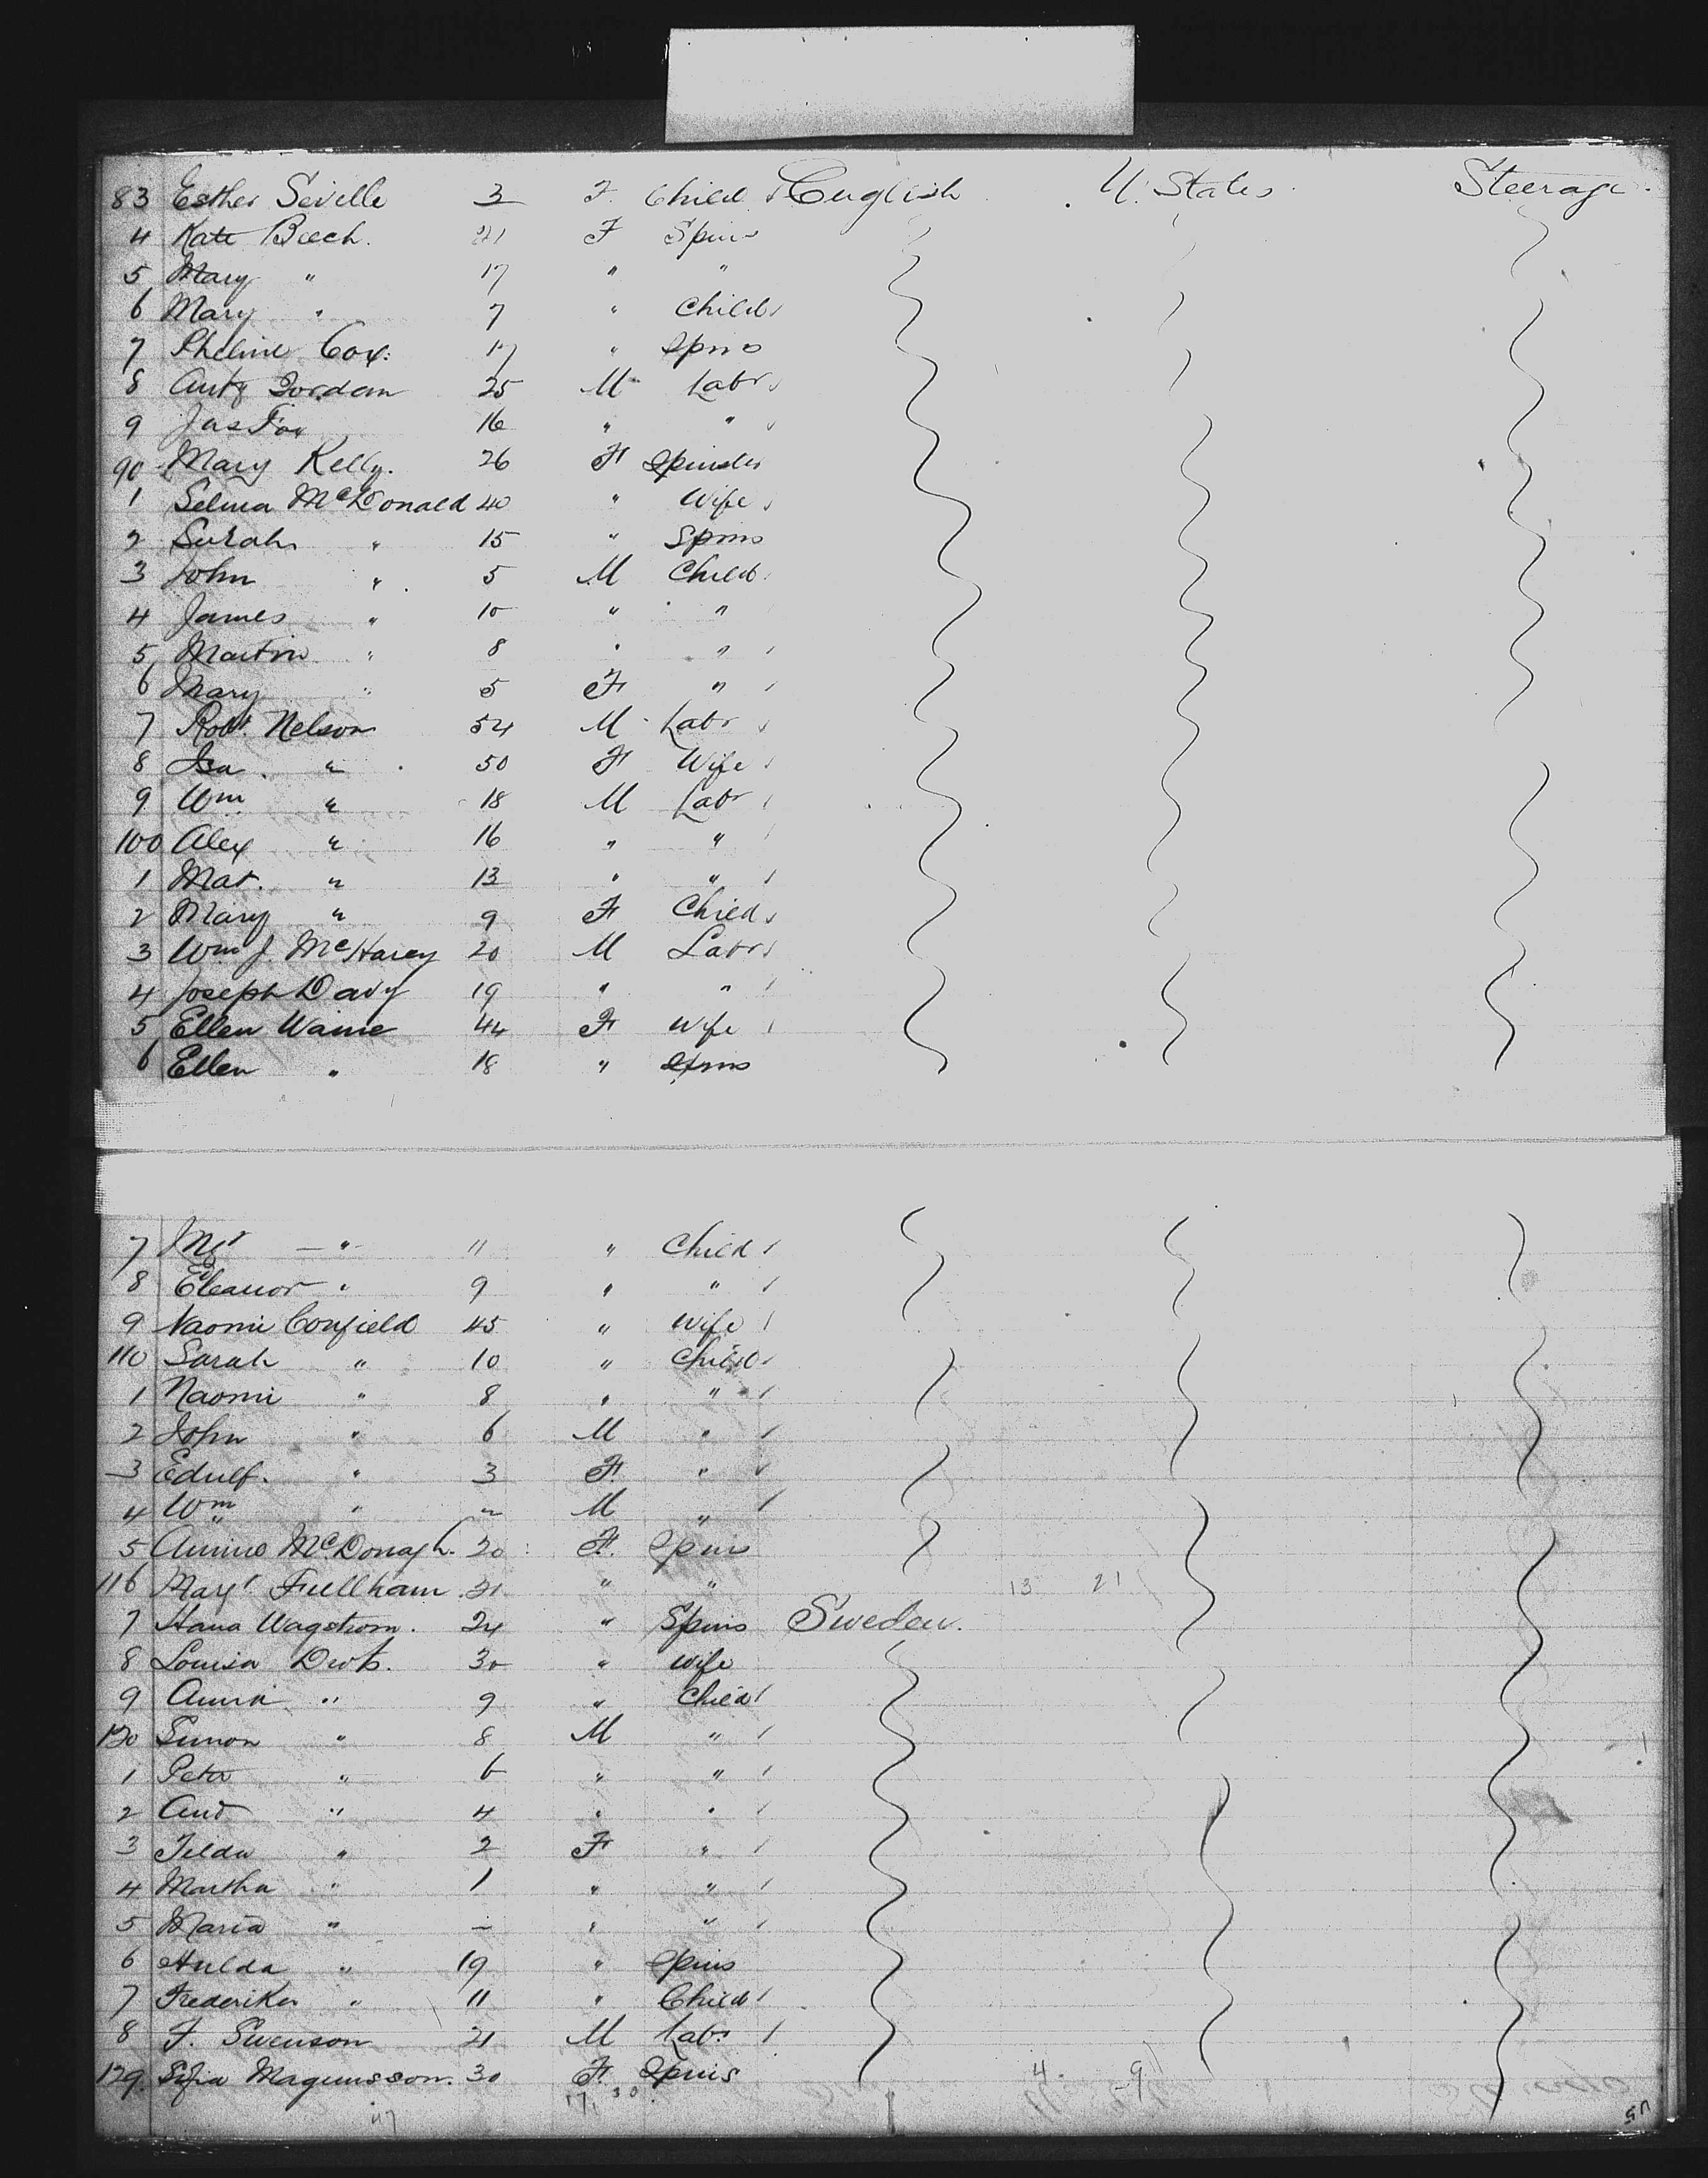 83 Esther Seville 3 F. Child English U. States Steerage.
4 Kate Beech. 21 F Spins
5 Mary " 17 " "
6 Mary " 7 " Child
7 Cox. 17 " Spins
8 Jordan 25 M Labr
9 Jas Fox 16 " "
90 Mary Kelly. 26 F Spinster
1 Selina McDonald 40 " Wife
2 Surah " 15 " Spins
3 John " 5 M Child
4 James " 10 " "
5 Martin " 8 " "
6 Mary " 5 F "
7 Robt. Nelson 54 M Labr
8 Isa. " 50 F Wife
9 Wm " 18 M Labr
100 Alex " 16 " "
1 Mat. " 13 " "
2 Mary " 9 F Child
3 Wm J. McHarey 20 M Labr
4 Joseph Davy 19 " "
5 Ellen Waine 44 F Wife
6 Ellen " 18 " Spins
7 Mgt " 11 " Child
8 Eleanor " 9 " "
9 Naomi Confield 45 " Wife
110 Sarah " 10 " Child
1 Naomi " 8 " "
2 John " 6 M "
3 " 3 F "
4 Wm " M "
5 Annie McDonagh. 20 F. Spins
116 Mary. Fullham 21 " " 13 21
7 Hana Wagstrom. 24 " Spins Sweden.
8 Louisa 30 " Wife
9 Anna " 9 " Child
120 Simon " 8 M "
1 Peter " 6 " "
2 And " 4 " "
3 Tilda " 2 F "
4 Martha " 1 " "
5 Maria " - " "
6 Hulda " 19 " Spins
7 Frederika " 11 " Child
8 F. Swenson 21 M Labr
129. Sofia Magnusson. 30 F. Spins 4 9
17 30
47